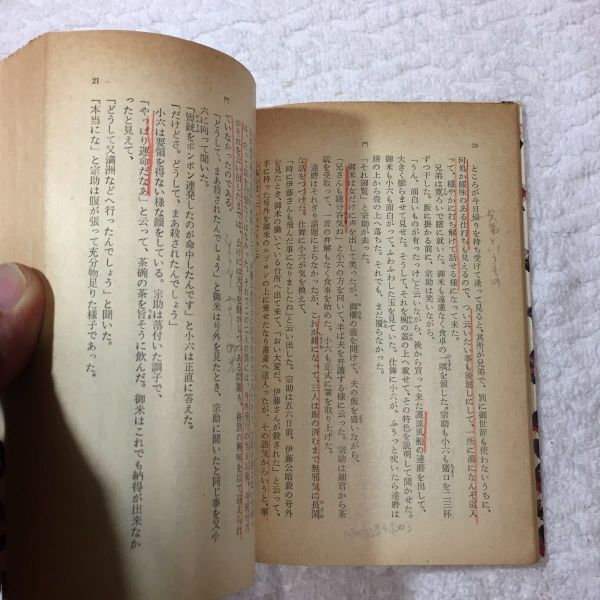 20
門
ところが今日帰りを待ち受けて逢って見ると、其所が兄弟で、別に御世辞も使わないうちに、
何処か暖味のある仕打も見えるので、つい云いたい事も後廻しにして、一所に湯になんぞ這入
って、穏やかに打ち解けて話せる様になって来た。
兄弟は寛ろいで膳に就いた。御米も遠慮なく食卓の一隅を領した。宗助も小六も猪口を二三杯
ずつ干した。飯に掛かる前に、宗助は笑いながら、
「うん、面白いものが有ったっけ」と云いながら、袂から買って来た護謨風船の達磨を出して、
大きく膨らませて見せた。そうして、それを椀の蓋の上へ載せて、その特色を説明して聞かせた。
御米も小六も面白がって、ふわふわした玉を見ていた。仕舞に小六が、ふうっと吹いたら達磨は
膳の上から畳の上へ落ちた。それでも、まだ覆らなかった。
「それ御覧」と宗助が云った。
御米は女だけに声を出して笑ったが、御櫃の蓋を開けて、夫の飯を盛いながら、
「兄さんも随分呑気ね」と小六の方を向いて、半ば夫を弁護する様に云った。宗助は細君から茶
碗を受取って、一言の弁解もなく食事を始めた。小六も正式に箸を取り上げた。
達磨はそれぎり話題に上らなかったが、これが緒になって、三人は飯の済むまで無邪気に長閑
な話をつづけた。仕舞に小六が気を換えて、
「時に伊藤さんも飛んだ事になりましたね」と云い出した。宗助は五六日前、伊藤公暗殺の号外
を見たとき、御米の働いている台所へ出て来て、「おい大変だ、伊藤さんが殺された」と云って、
手に持った号外を御米のエプロンの上に乗せたなり書斎へ這入ったが、その語気からいうと、寧
21
門
ていなかったのである。
「どうして、まあ殺されたんでしょう」と御米は号外を見たとき、宗助に聞いたと同じ事を又小
六に向って聞いた。
「短銃をポンポン連発したのが命中したんです」と小六は正直に答えた。
「だけどさ。どうして、まあ殺されたんでしょう」
小六は要領を得ない様な顔をしている。宗助は落付いた調子で、
「やっぱり運命だなあ」と云って、茶碗の茶を旨そうに飲んだ。御米はこれでも納得が出来なか
ったと見えて、
「どうして又満洲などへ行ったんでしょう」と聞いた。
「本当にな」と宗助は腹が張って充分物足りた様子であった。